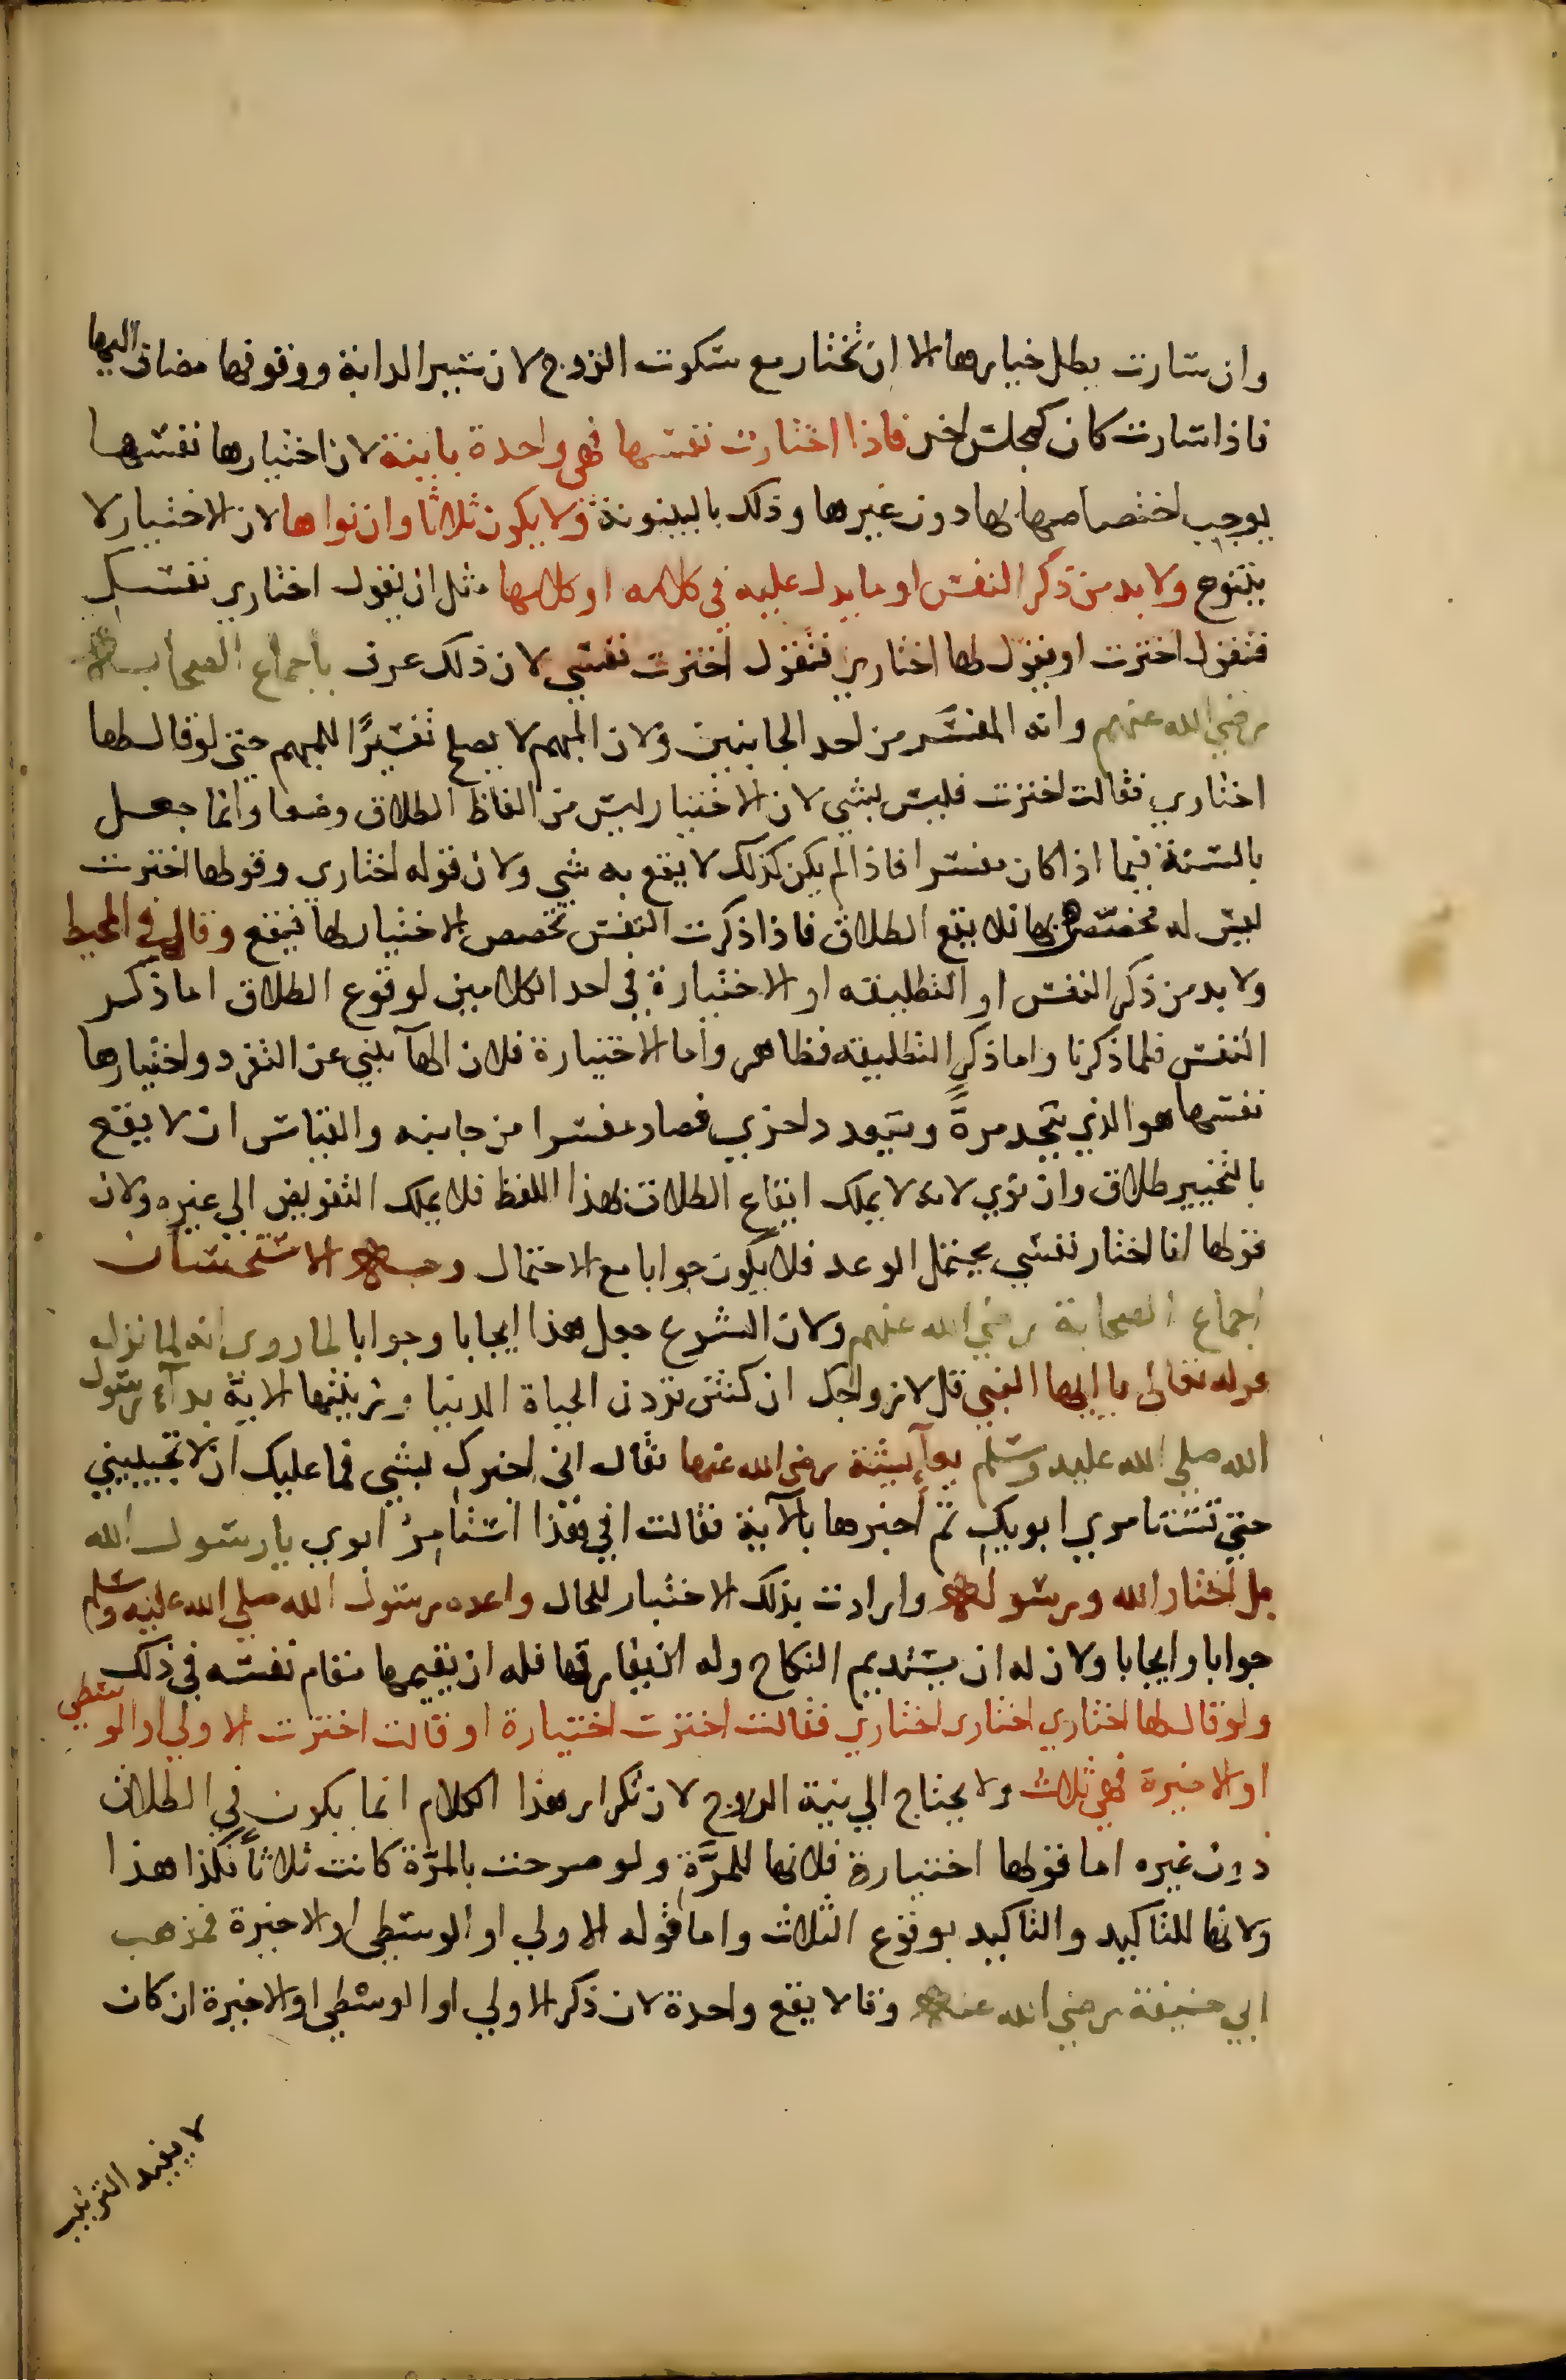 وان سارت بطل خيارها الا ان تختار مع سكوت الزوج لان سير الدابة ووقوفها مضاف اليها
فاذا سارت كان كمجلس اخر فاذا اختارت نفسها فهي واحدة باينة لان اختيارها نفسها
يوجب اختصاصها بها دون غيرها وذلك بالبينونة ولا يكون ثلاثا وان نواها لان الاختيار لا
يتنوع ولا بد من ذكر النفس او ما يدل عليه في كلامه او كلامها مثل ان يقول اختاري نفسك
فتقول اخترت او يقول لها اختاري فتقول اخترت نفسي لان ذلك عرف باجماع الصحابة
رضي الله عنهم وانه المفسر من احد الجانبين ولان المبهم لا يصلح تفسيرًا للمبهم حتى لو قال لها
اختاري فقالت اخترت فليس بشي لان الاختيار ليس من الفاظ الطلاق وضعا وانما جعل
بالسنة فيما اذا كان مفسرا فاذا لم يكن كذلك لا يقع به شي ولان قوله اختاري وقولها اخترت
ليس له مخصص بها فلا يقع الطلاق فاذا ذكرت النفس تخصص الاختيار لها فيقع وقال في المحيط
ولا بد من ذكر النفس او التطليقه او الاختيارة في احد الكلامين لوقوع الطلاق اما ذكر
النفس فلما ذكرنا واما ذكر التطليقه فظاهر واما الاختيارة فلان الهآ ينبي عن التفرد واختيارها
نفسها هو الذي يتحد مرةً ويتعدد اخري فصار مفسرا من جانبه والقياس ان لا يقع
بالتخيير طلاق وان نوي لانه لا يملك ايقاع الطلاق بهذا اللفظ فلا يملك التفويض الي غيره ولان
قولها انا اختار نفسي يحتمل الوعد فلا يكون جوابا مع الاحتمال وجه الاستحسان
اجماع الصحابة رضي الله عنهم ولان الشرع جعل هذا ايجابا وجوابا لما روي انه لما نزل
قوله تعالى يا ايها النبي قل لازواجك ان كنتن تردن الحياة الدنيا وزينتها الاية بدآء رسول
الله صلي الله عليه وسلم بعآيشة رضي الله عنها فقال اني اخبرك بشي فما عليك ان لا تجيبيني
حتي تستامري ابويك ثم اخبرها بالآية فقالت افي هذا استامرُ ابوي يا رسول الله
بل اختار الله ورسوله وارادت بذلك الاختيار للحال واعده رسول الله صلي الله عليه وسلم
جوابا وايجابا ولان له ان يستديم النكاح وله ان يفارقها فله ان يقيمها مقام نفسه في ذلك
ولو قال لها اختاري اختاري اختاري فقالت اخترت اختيارة او قالت اخترت الاولي او الوسطي
او الاخيرة فهي ثلاث ولا يحتاج الي نية الزوج لان تكرار هذا الكلام انما يكون في الطلاق
دون غيره اما قولها اختيارة فلانها للمرَّةِ ولو صرحت بالمرّة كانت ثلاثاً فكذا هذا
ولانها للتاكيد والتاكيد بوقوع الثلاث واما قوله الاولي او الوسطي او الاخيرة فمذهب
ابي حنيفة رضي الله عنه وقالا يقع واحدة لان ذكر الاولي او الوسطي او الاخيرة ان كان
لا يفيد الترتيب